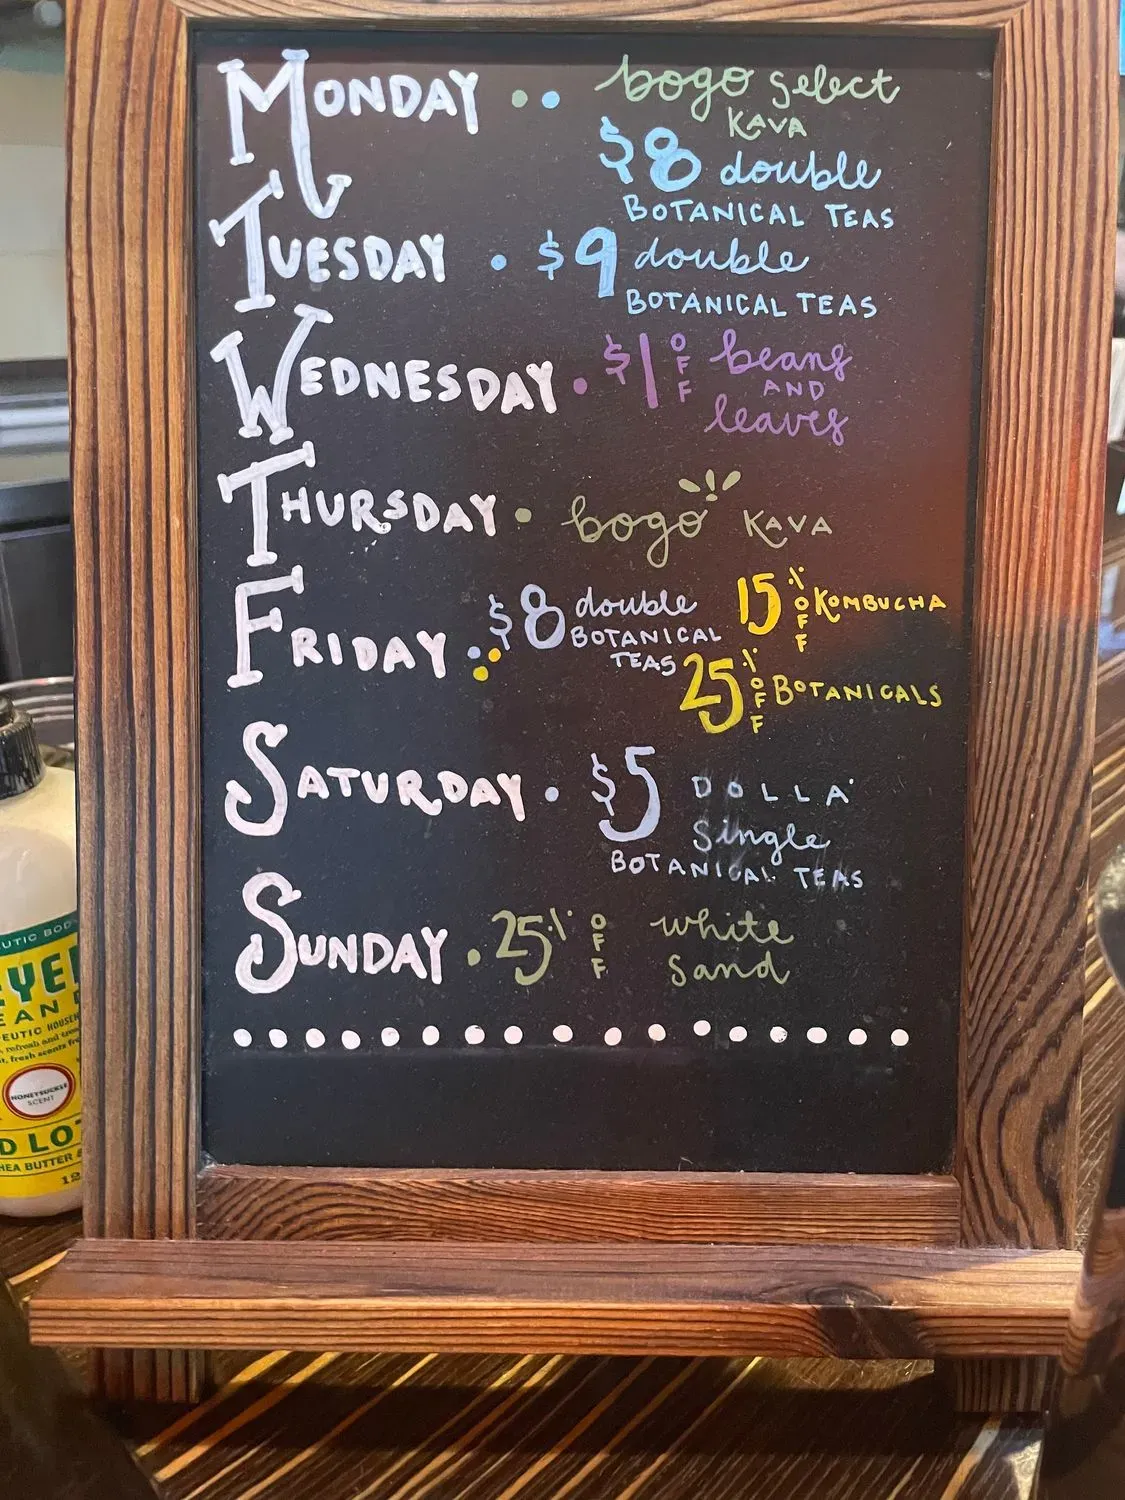 MONDAY bogo select
KAVA
$8 double
BOTANICAL TEAS
TUESDAY $9 double
BOTANICAL TEAS
WEDNESDAY $1 OFF beans
AND
leaves
THURSDAY bogo KAVA
FRIDAY $8 double
BOTANICAL
TEAS
15% OFF KOMBUCHA
25% OFF BOTANICALS
SATURDAY $5 DOLLA'
single
BOTANICAL TEAS
SUNDAY 25% OFF white
sand
HONEYSUCKLE
SCENT